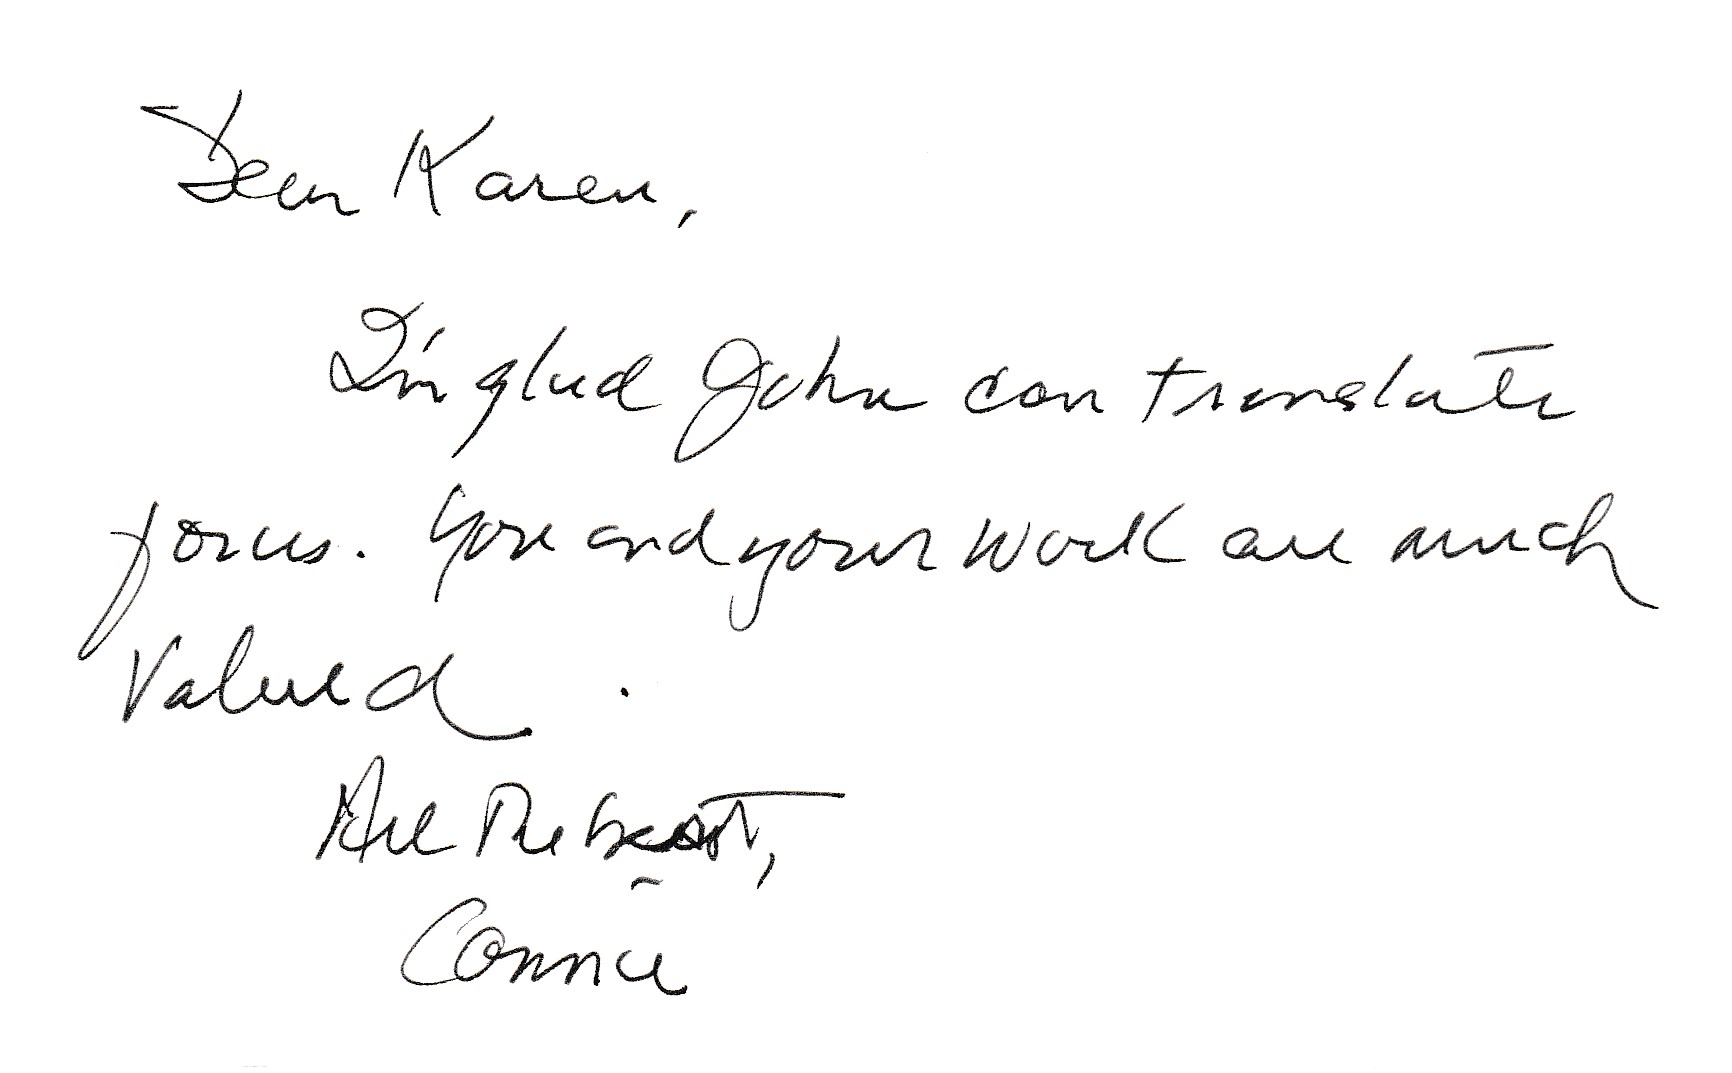 Dear Karen,
I'm glad John can translate
for us. You and your work are much
valued.
All The best,
Connie